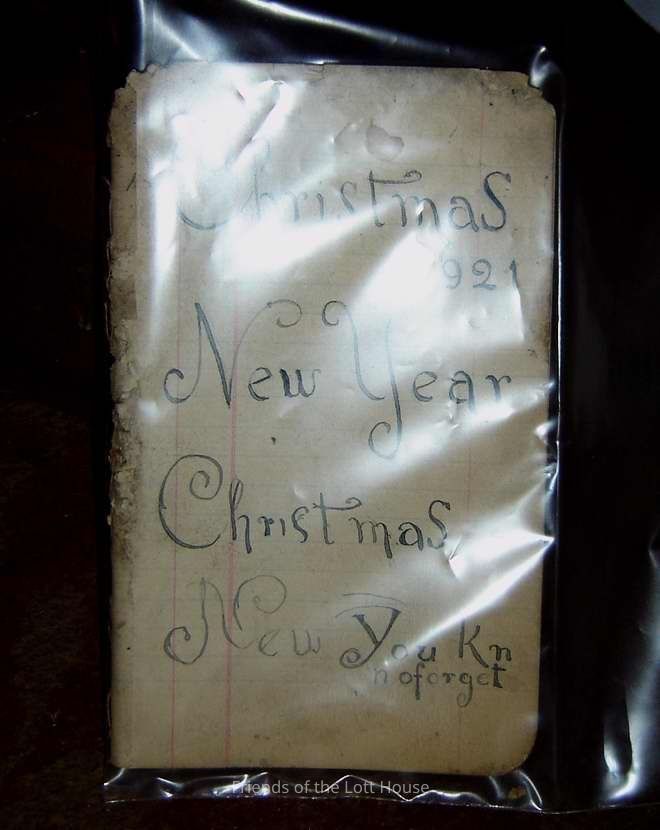 Christmas
921
New Year
Christmas
New You Kn
n oforget
Friends of the Lott House